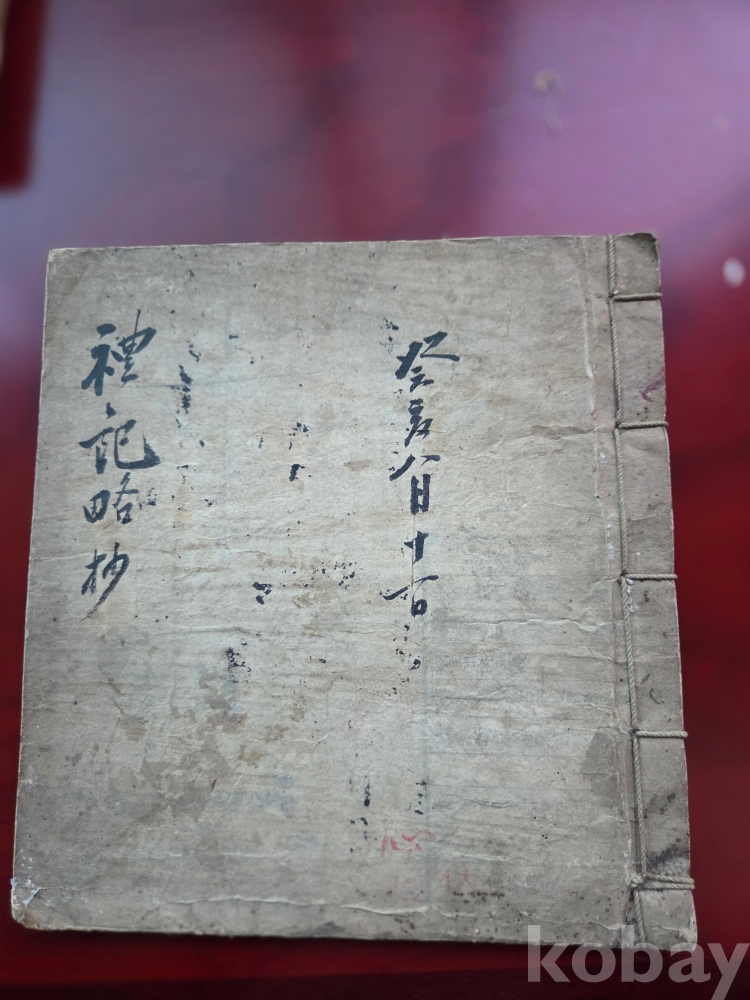 癸亥八月十一日
禮記略抄
kobay